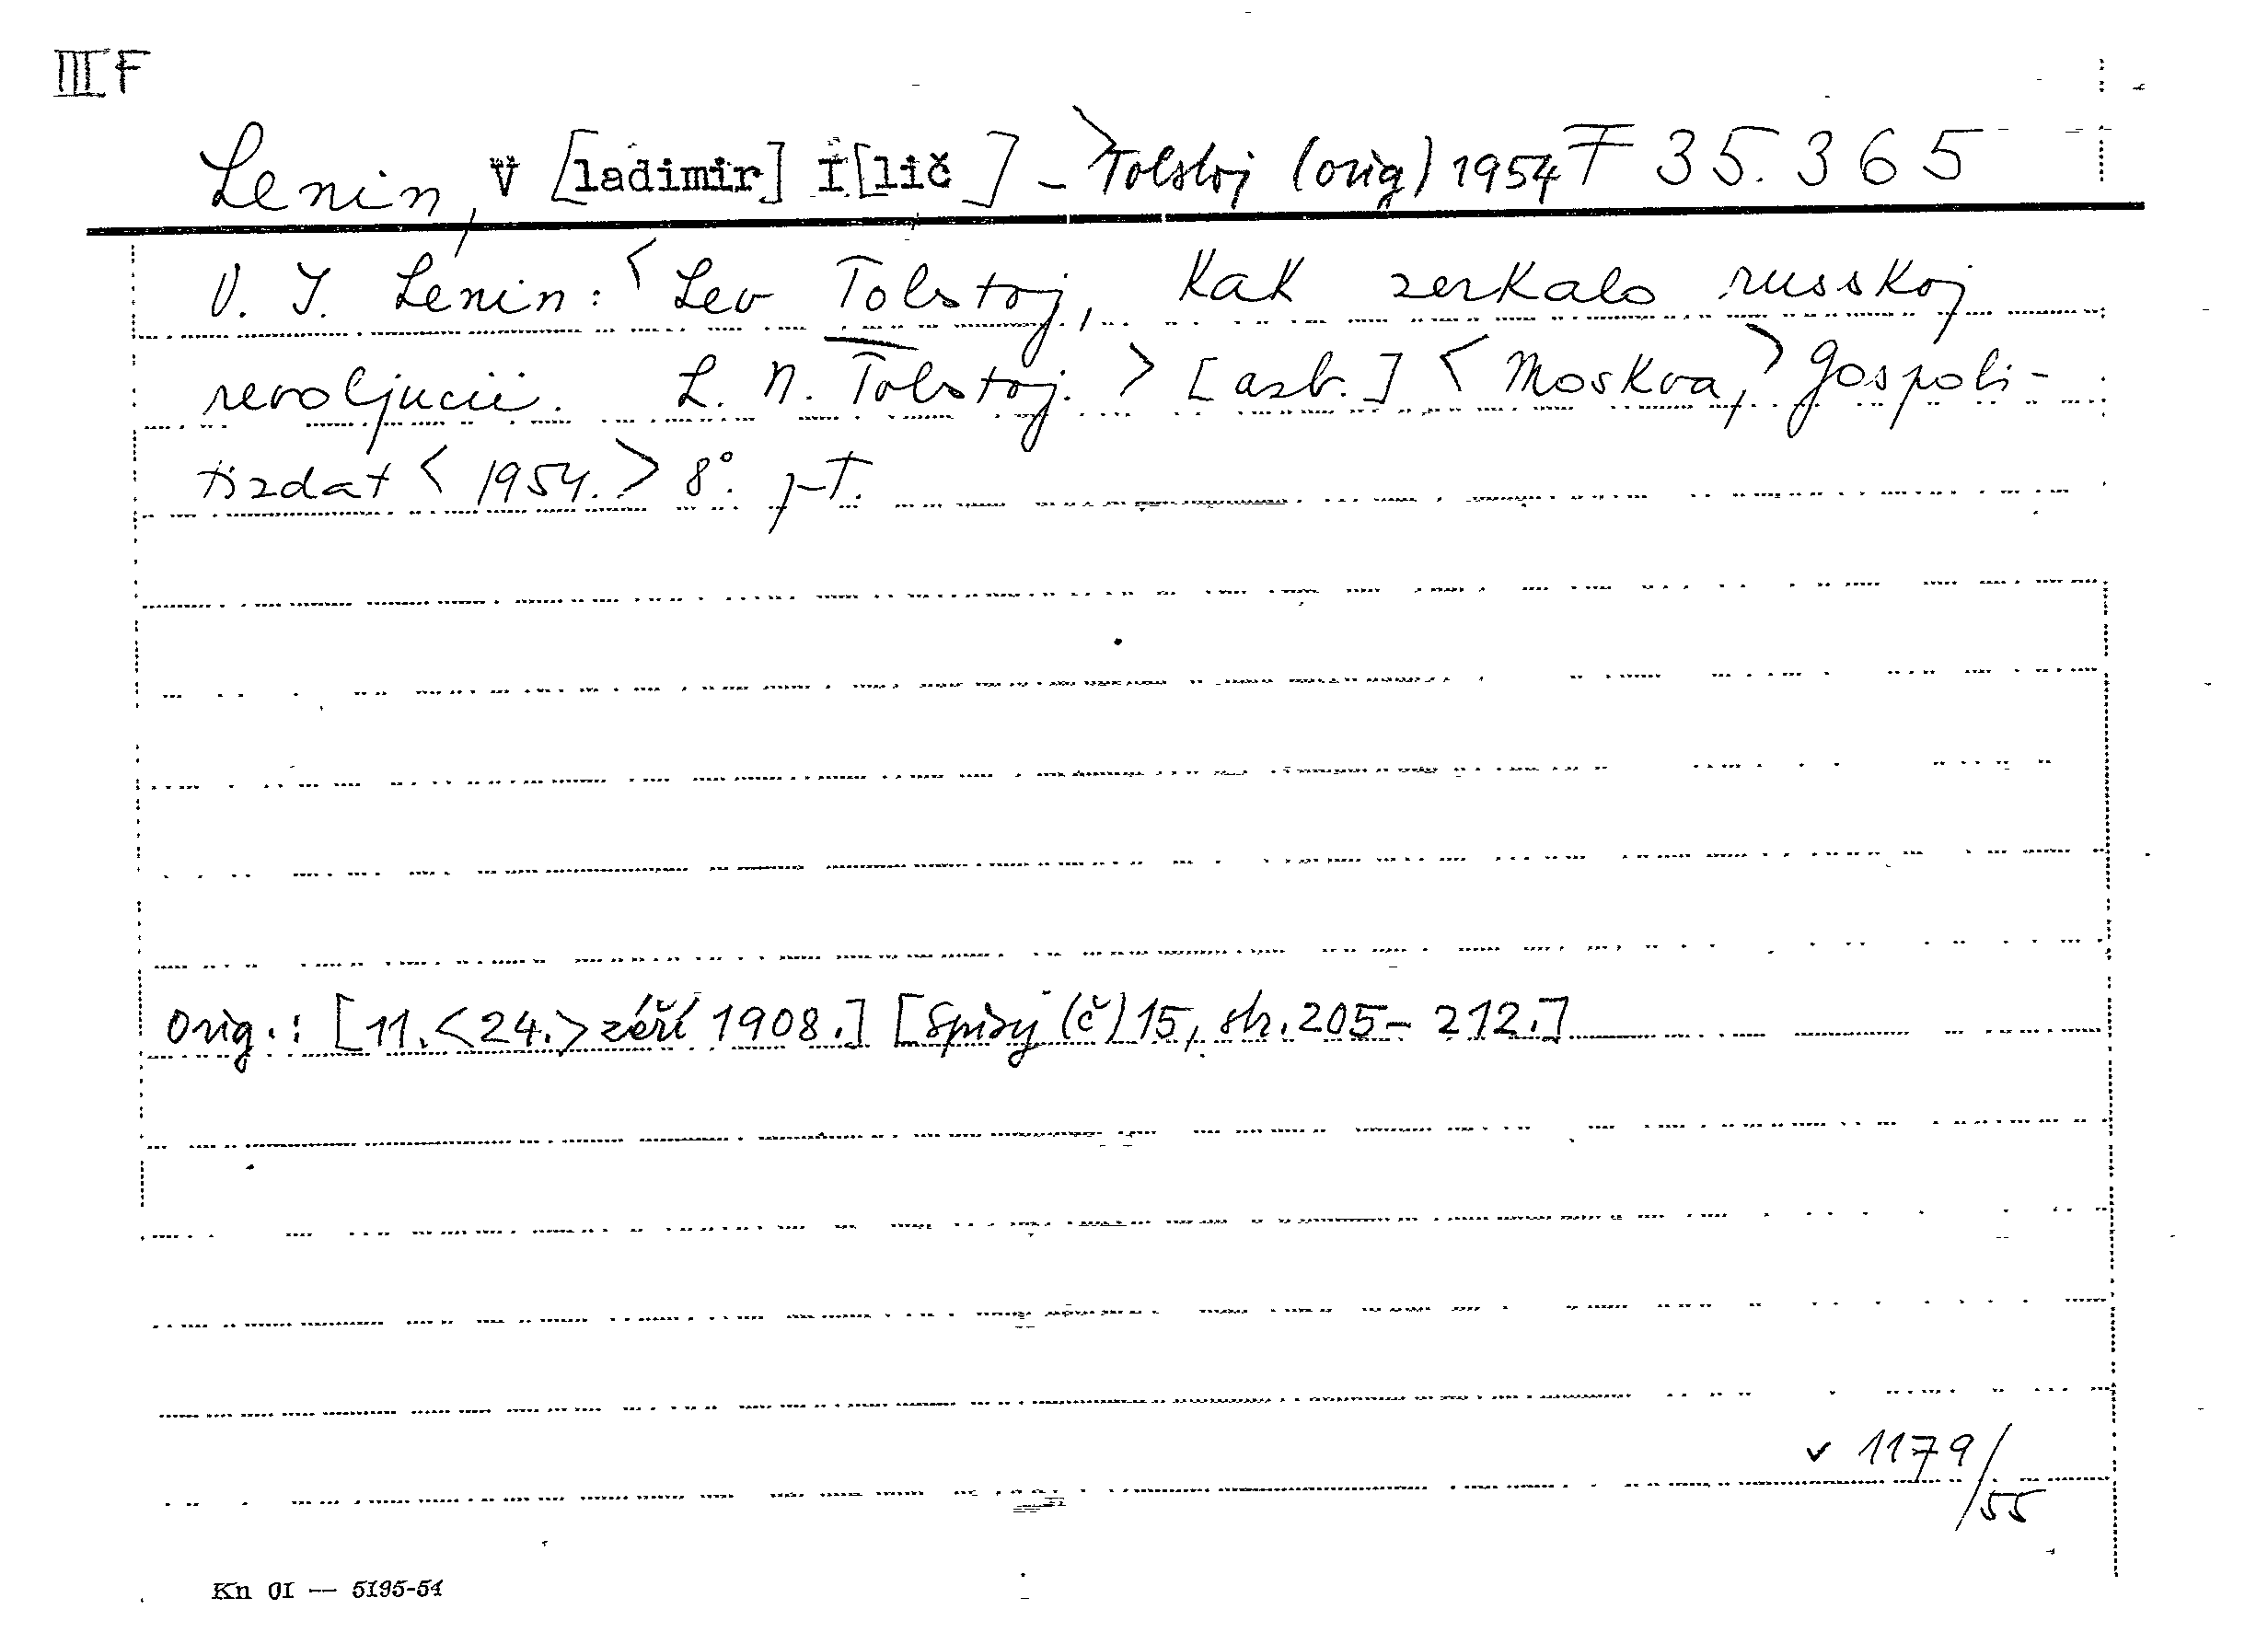 III F
Lenin, V [ladimir] I[lič ] - Tolstoj (orig) 1954 F 35.365
V. I. Lenin: < Lev Tolstoj, kak zerkalo russkoj
revoljucii. L. N. Tolstoj. > [azb.] < Moskva, > Gospoli-
tizdat < 1954. > 8°.
Orig.: [11. <24.> září 1908.] [Spisy (č) 15, str. 205- 212.]
v 1179/55
Kn 01 — 5195-54